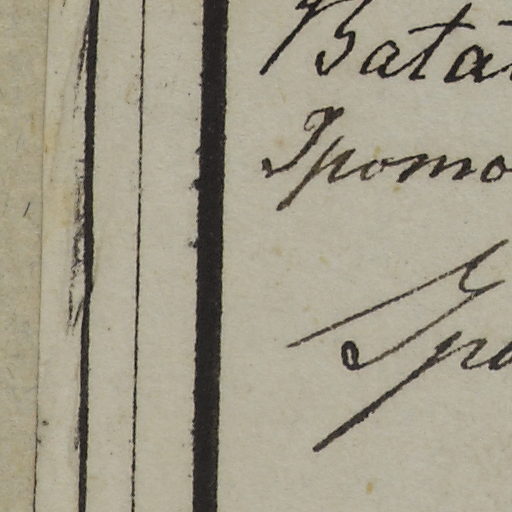 Batat
Ipomo
Ipo